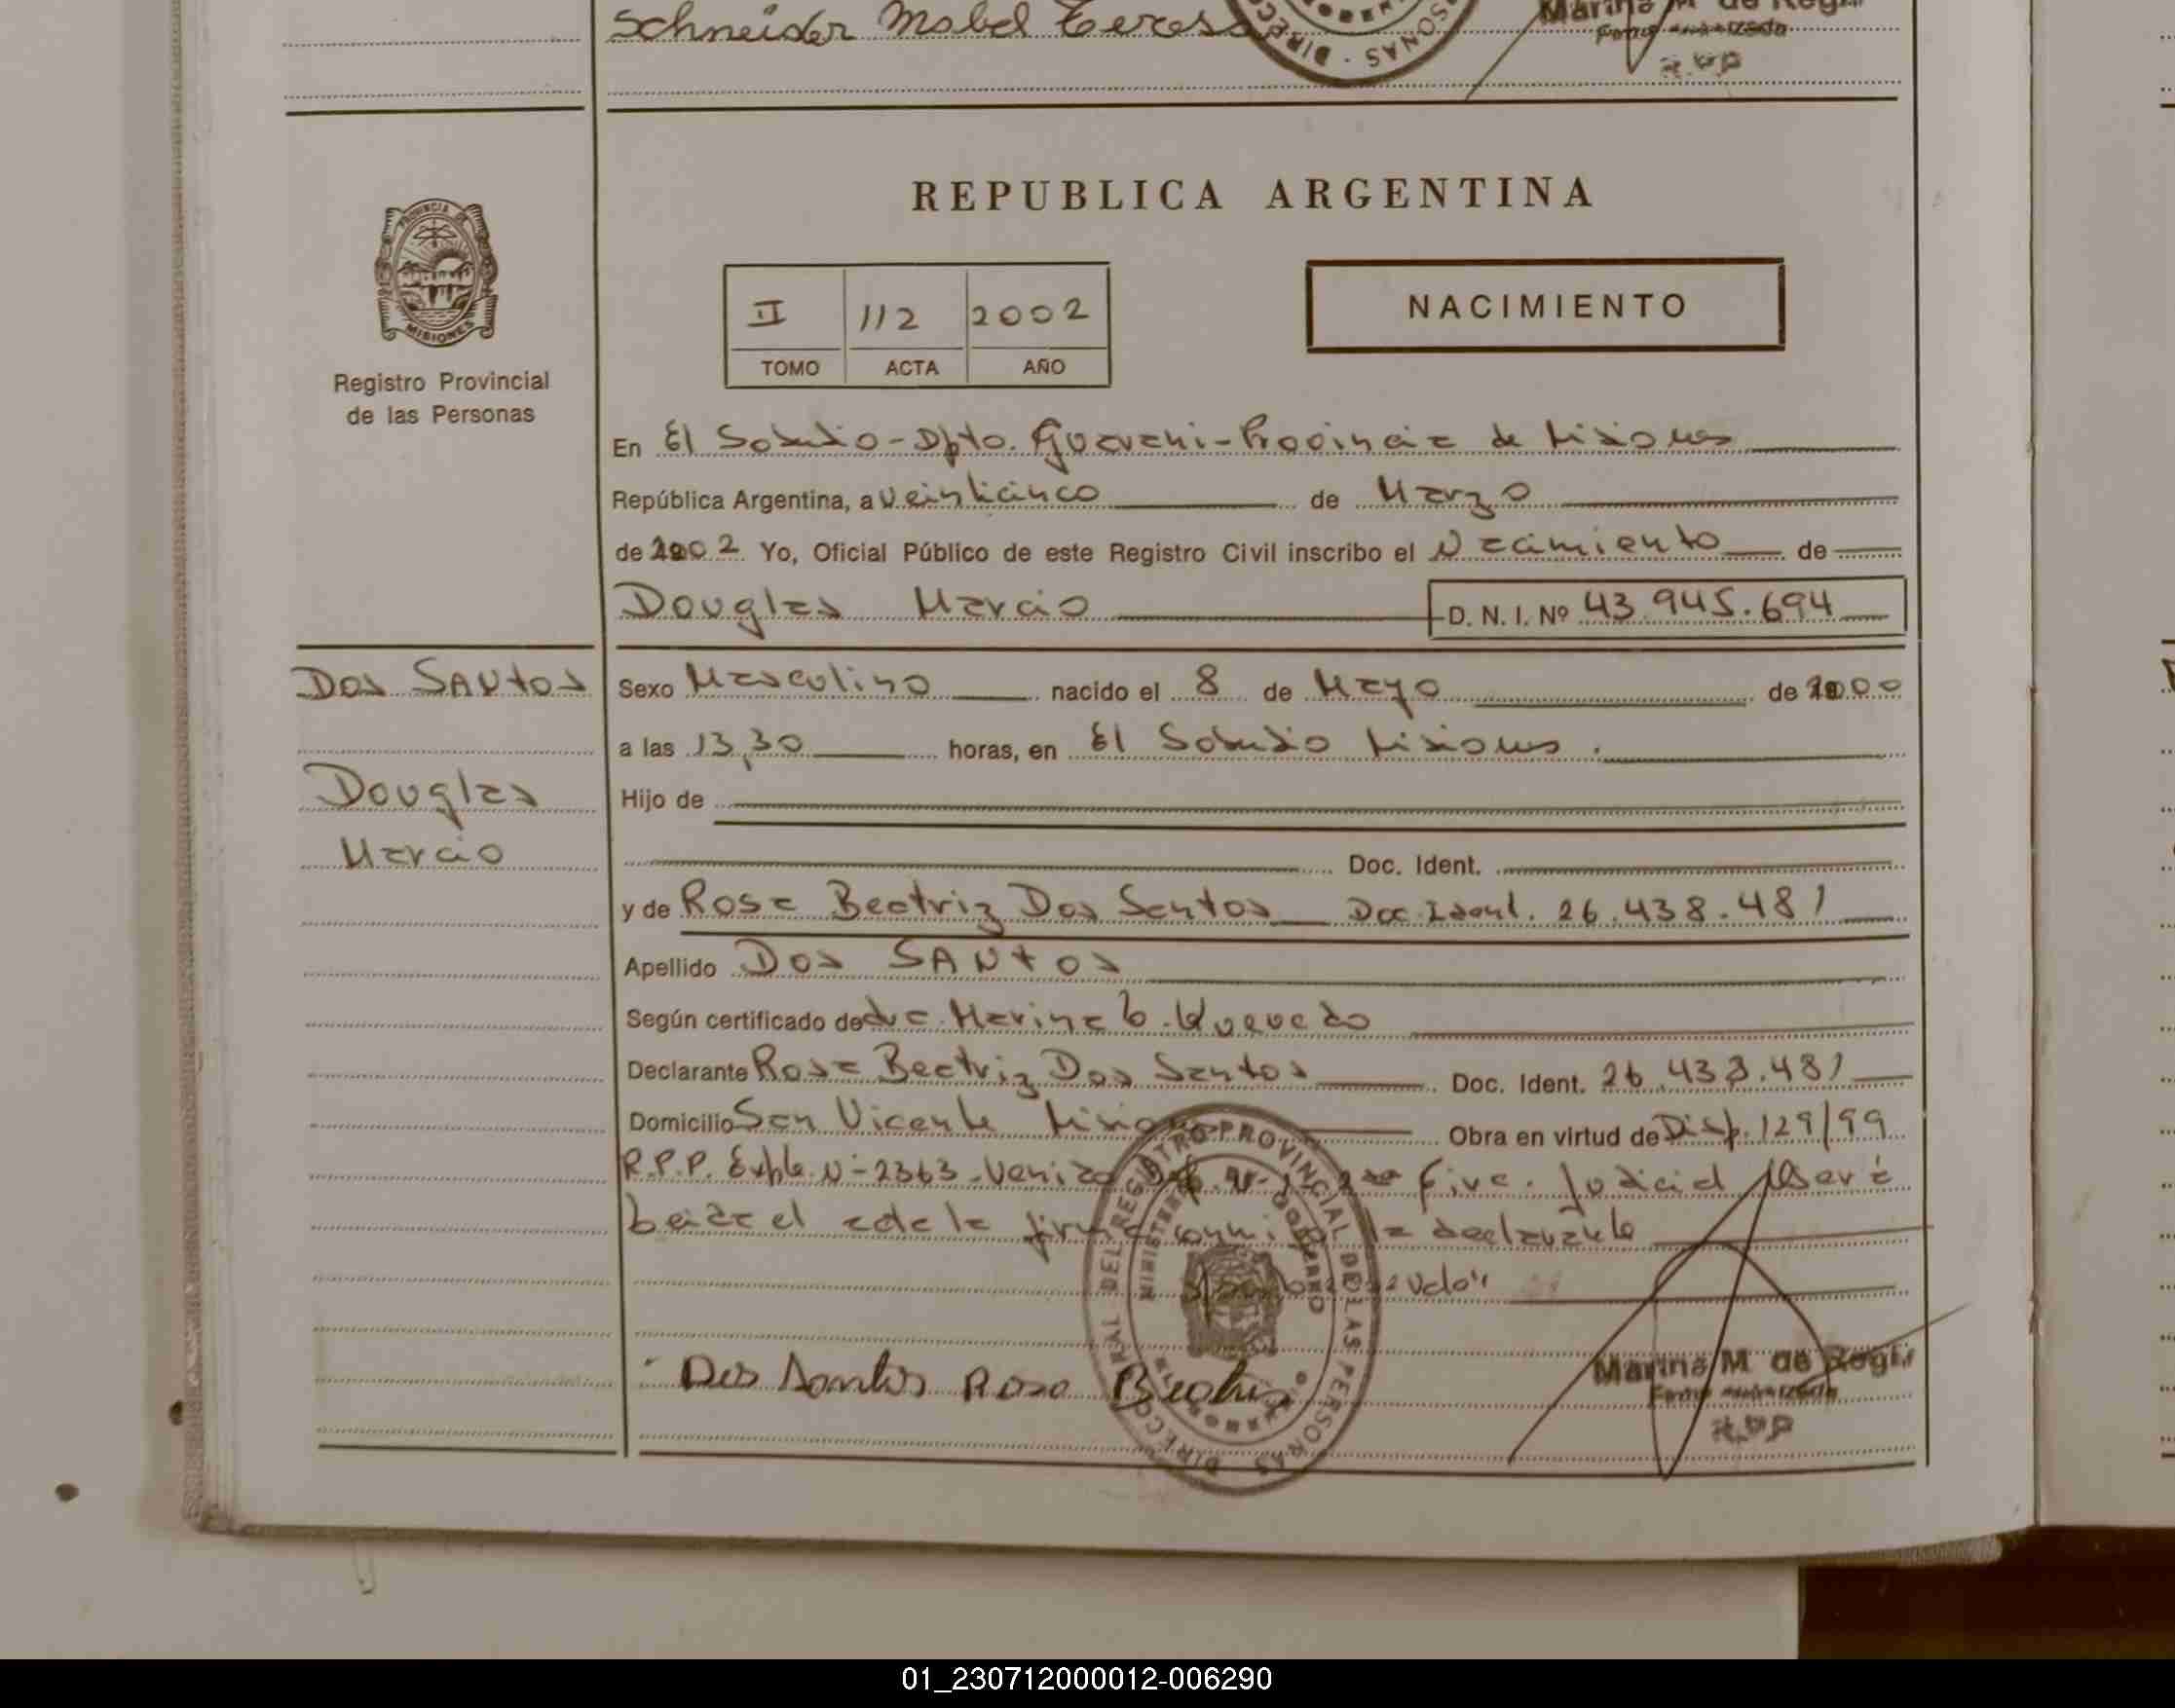 Schneider Mabel Teresa
Marina M de Regli
Firma autorizada
R.P.P
REPUBLICA ARGENTINA
PROVINCIA DE
MISIONES
Registro Provincial
de las Personas
II 112 2002
TOMO ACTA AÑO
NACIMIENTO
En El Soberbio - Dpto. Guarani - Provincia de Misiones
República Argentina, a veinticinco de Marzo
de 2002 Yo, Oficial Público de este Registro Civil inscribo el Nacimiento de
Douglas Marcio D. N. I. Nº 43.945.694
Dos SANtos
Douglas
Marcio
Sexo Masculino nacido el 8 de Mayo de 2000
a las 13,30 horas, en El Soberbio Misiones.
Hijo de
Doc. Ident.
y de Rosa Beatriz Dos Santos Doc. Ident. 26.438.481
Apellido Dos SANtos
Según certificado de Marina B. Quevedo
Declarante Rosa Beatriz Dos Santos Doc. Ident. 26.438.481
Domicilio San Vicente Obra en virtud de Disp. 129/99
R.P.P. Expte. Nº 2363 - Circ. Judicial
el acta la firma la declarante
DIRECCION GENERAL DEL REGISTRO PROVINCIAL DE LAS PERSONAS
MINISTERIO DE GOBIERNO
Dos Santos Rosa Beatriz
Marina M de Regli
Firma autorizada
R.P.P
01_230712000012-006290